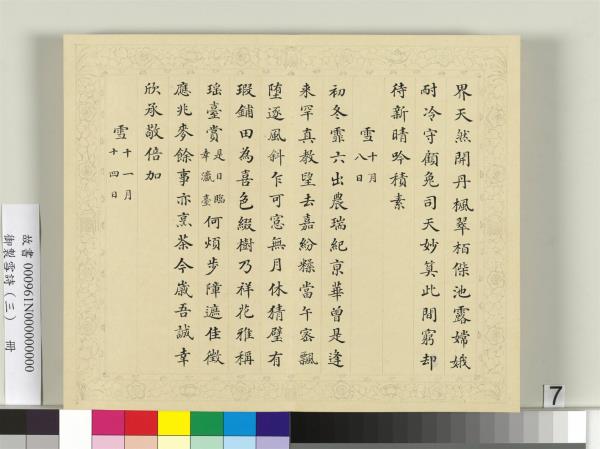 界天然開丹楓翠栢傑池露嫦娥
耐冷守顧兔司天妙莫此間窮却
待新晴吟積素
雪十月八日
初冬霏六出農瑞紀京華曽是逢
来罕真教望去嘉紛糅當午密飄
墮逐風斜乍可窓無月休猜璧有
瑕鋪田為喜色綴樹乃祥花雅稱
瑶臺賞是日臨幸瀛臺何煩步障遮佳徵
應兆麥餘事亦烹茶今歲吾誠幸
欣承敬倍加
雪十一月十四日
故書000961N000000000
御製雪詩(三) 冊
7